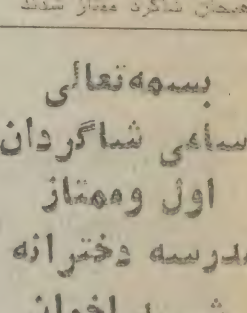 همچنان شاگرد ممتاز شدند
بسمه تعالی
سامی شاگردان
اول وممتاز
درسه دخترانه